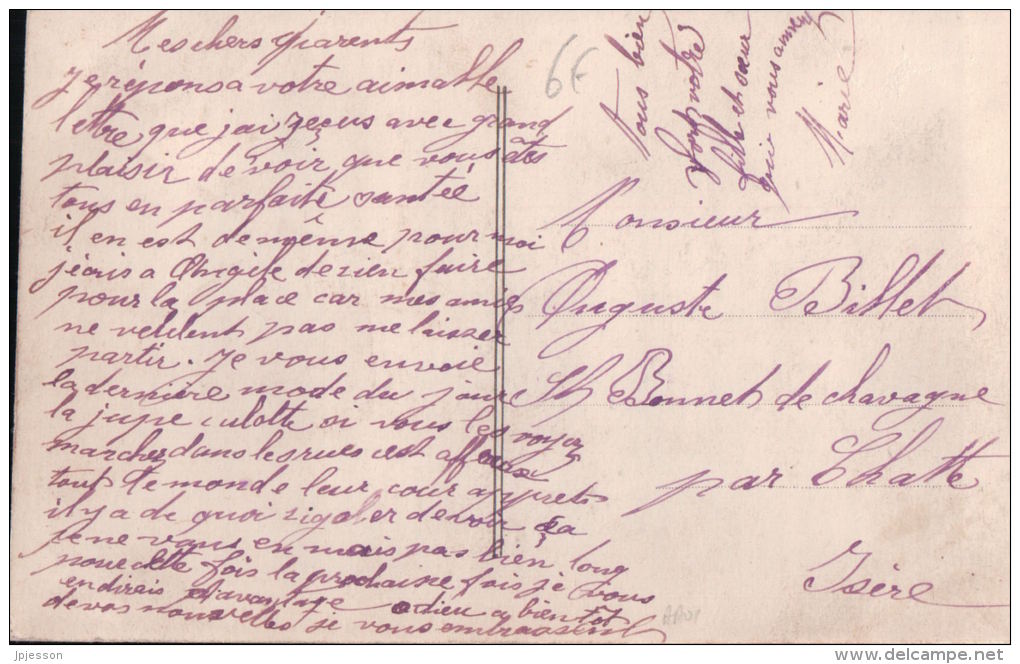 Mes chers parents
Je répons a votre aimable
lettre que jai reçus avec grand
plaisir de voir que vous êtes
tous en parfaite santée
il en est de même pour moi
j'ecris a Angile de rien faire
pour la place car mes amies
ne veulent pas me laisser
partir. Je vous envoie
la dernière mode du jour
la jupe culotte si vous les voyez
marcher dans les rues c'est affreux
tout le monde leur cour apprets
il y a de quoi rigoler de voir sa
je ne vous en mais pas bien long
pour cette fois la prochaine fois je vous
en dirais davantage adieu a bientot
de vos nouvelles je vous embrassent
tous bien
fort votre
fille et soeur
qui vous aime
Marie
6€
Monsieur
Auguste Billet
St Bonnet de chavagne
par Chatte
Isère
jpjesson
delcampe.net